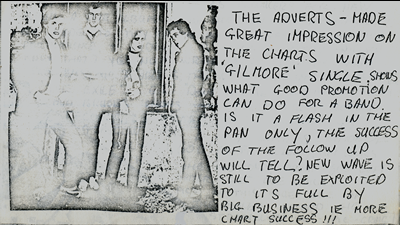 THE ADVERTS - MADE
GREAT IMPRESSION ON
THE CHARTS WITH
'GILMORE' SINGLE, SHOWS
WHAT GOOD PROMOTION
CAN DO FOR A BAND.
IS IT A FLASH IN THE
PAN ONLY, THE SUCCESS
OF THE FOLLOW UP
WILL TELL? NEW WAVE IS
STILL TO BE EXPLOITED
TO ITS FULL BY
BIG BUSINESS IE MORE
CHART SUCCESS !!!